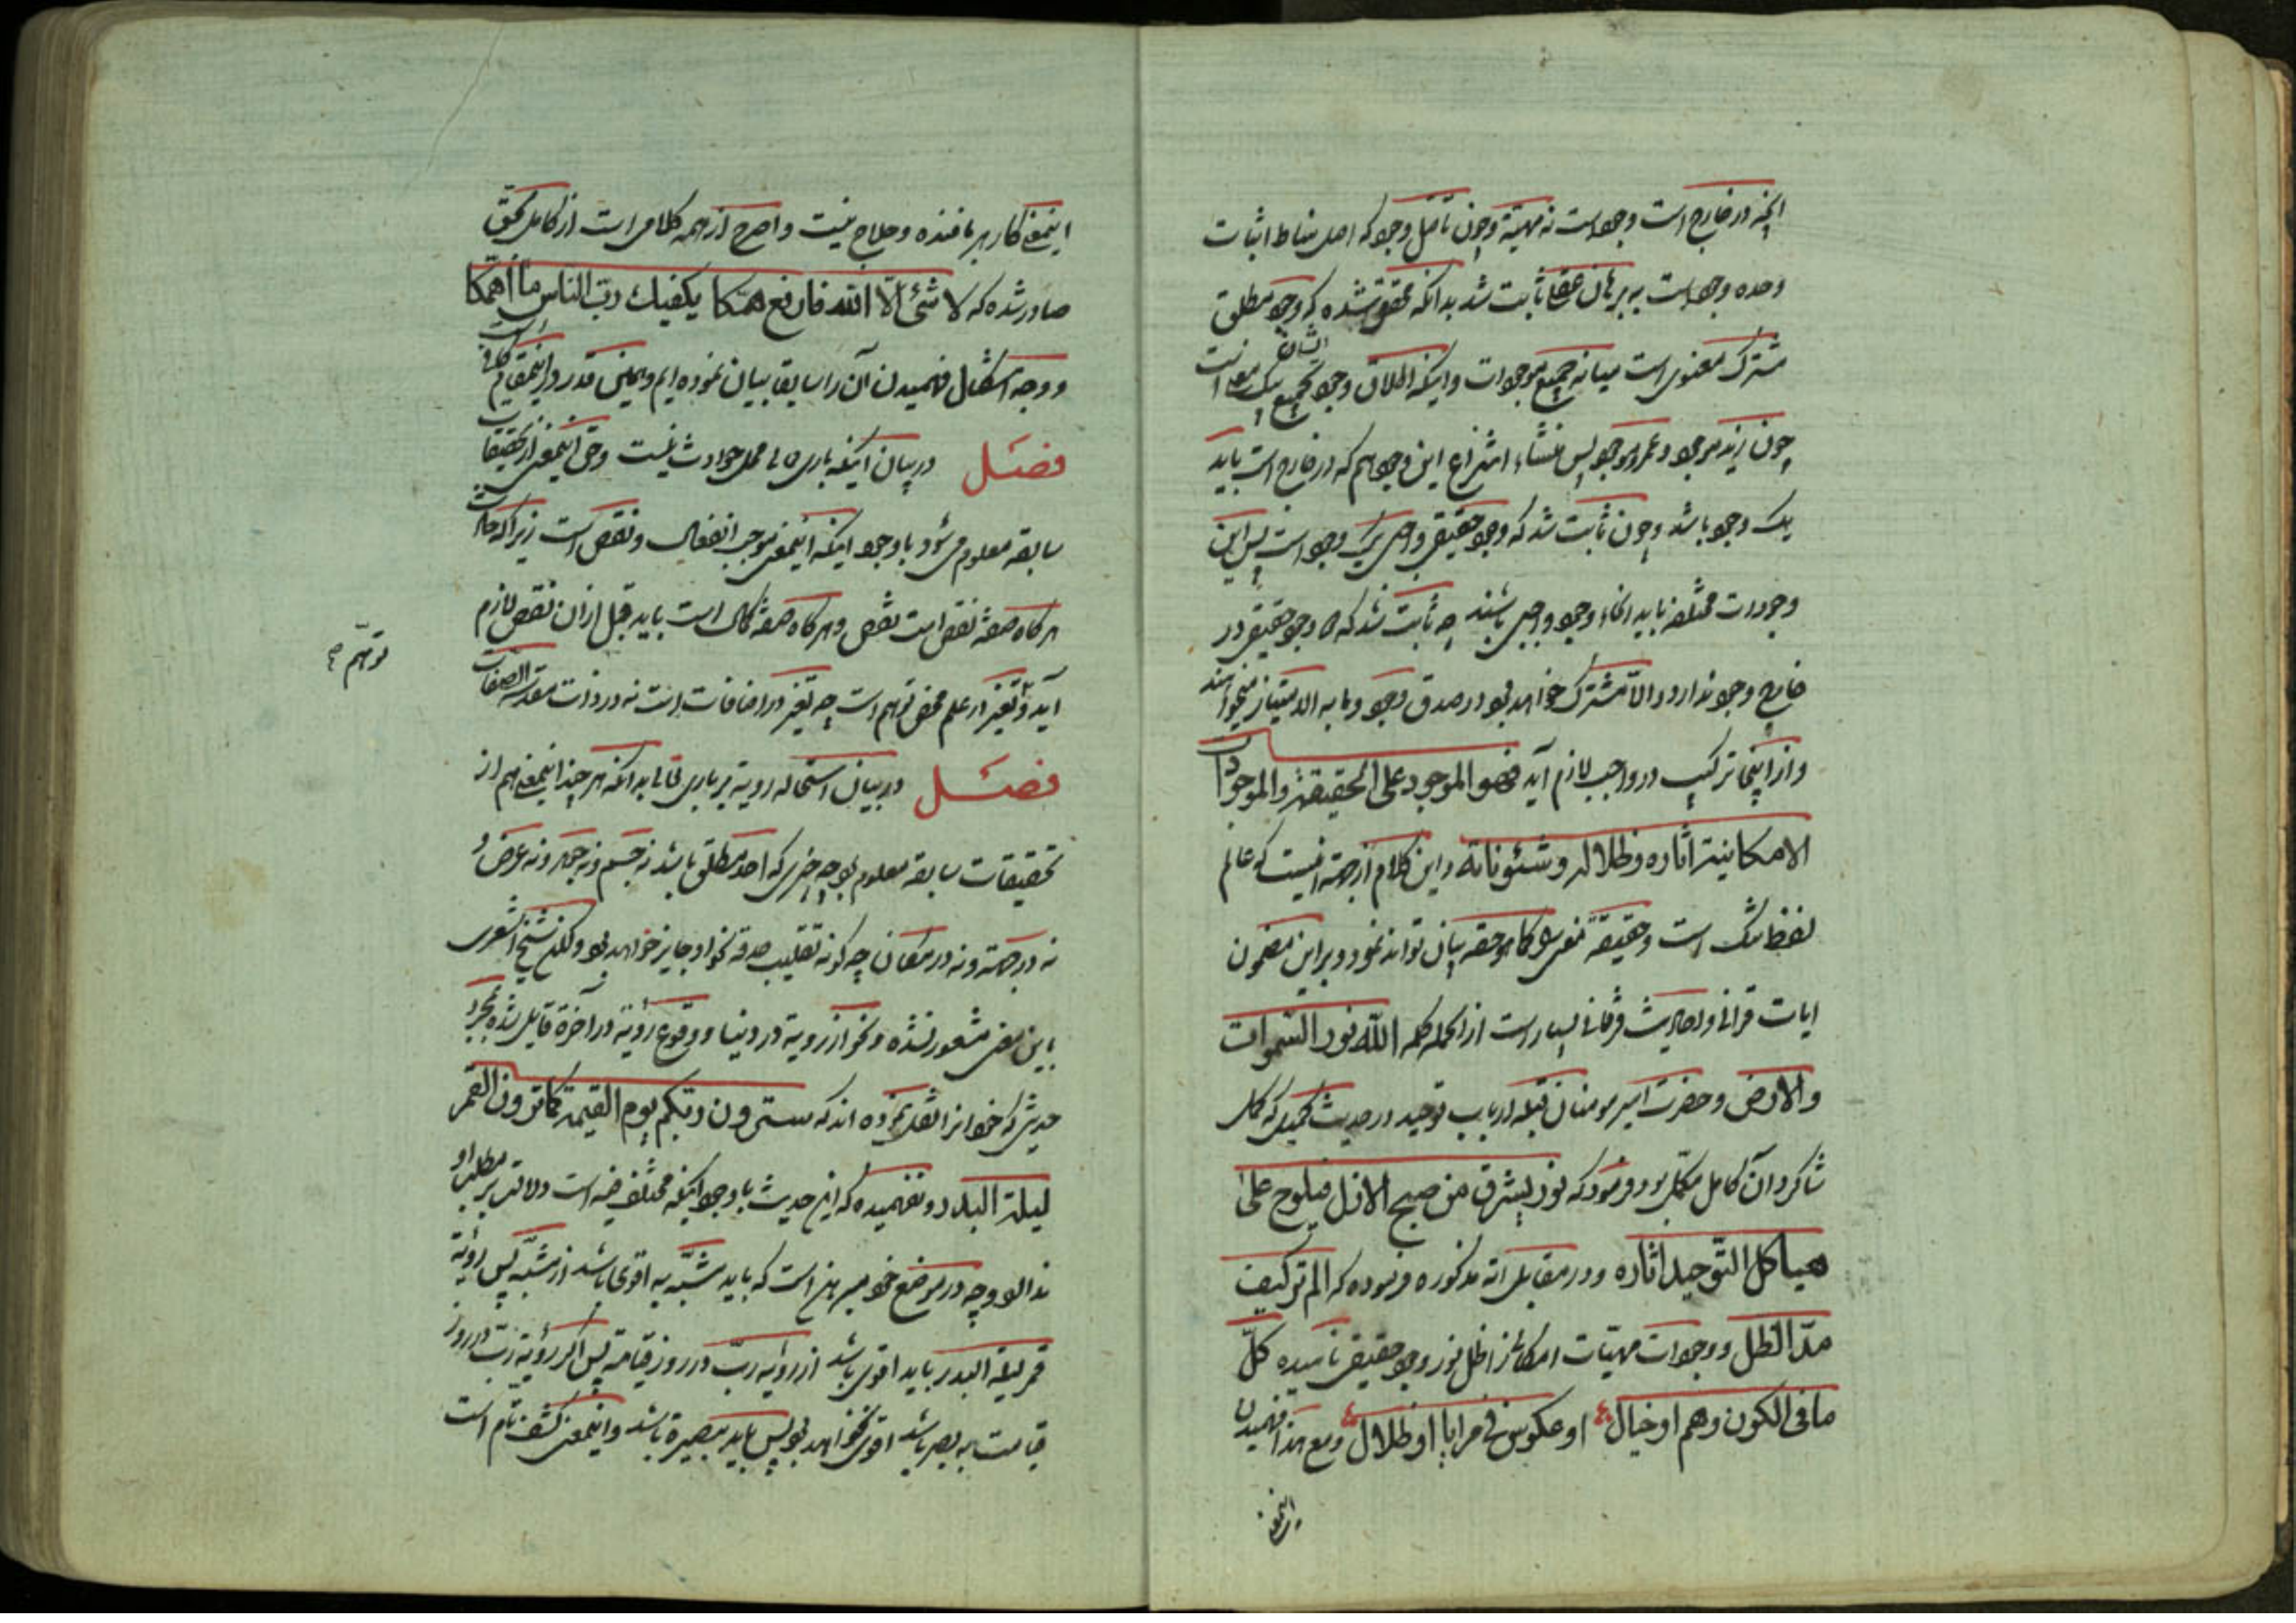 آنچه در خارج است وجود است نه مهیة و چون تأمل وجود که اصل مناط اثبات
وحده وجود است به برهان عقلی ثابت شد بدانکه محقق شده که وجود مطلق
مشترک معنوی است میانه جمیع موجودات و اینکه اطلاق وجود بجمیع بیک معنی است
چون زید موجود و عمرو موجود پس منشاء انتزاع این وجود هم که در خارج است باید
یک وجود باشد و چون ثابت شد که وجود حقیقی واجبی یک وجود است پس این
وجودات مختلفه باید انحاء وجود واجبی باشند چه ثابت شد که وجود حقیقی در
خارج وجود ندارد و الا مشترک خواهند بود در صدق وجود و ما به الامتیاز میخواهند
و از اینجا ترکیب در واجب لازم آید فهو الموجود علی الحقیقة و الموجودات
الامکانیة اثاره و ظلاله و شئوناته و این کلام از جهة آنست که عالم
لفظ تنگ است و حقیقة معنی را کما هو حقه بیان نتواند نمود و بر این مضمون
ایات قرانی و احادیث فرقانی بسیار است از انجمله کلمه الله نور السموات
والارض و حضرت امیر مومنان قبله ارباب توحید در حدیث کمیل که
شاکرد آن کامل مکمل بود فرمود که نور یشرق من صبح الازل فیلوح علی
هیاکل التوحید اثاره و در مقابل آیه مذکوره فرموده که الم تر کیف
مد الظل و وجودات مهیات امکانی را ظل نور وجود حقیقی نامیده کل
ما فی الکون وهم او خیال او عکوس فی مرایا او ظلال و مع هذا فهمیدن
اینمعنی
اینمعنی کار هر بافنده و حلاج نیست و اصرح از همه کلامی است از کامل محقق
صادر شده که لا شئ الا الله فارفع همکا یکفیک رب الناس ما اهمکا
و وجه اشکال فهمیدن آن را سابقا بیان نموده ایم و همین قدر در اینمقام کافی است
فصل در بیان اینکه باری تعالی محل حوادث نیست و حق اینمعنی از تحقیقات
سابقه معلوم می شود با وجود اینکه اینمعنی موجب انفعال و نقص است زیرا که حادث
هر کاه صفة نقص است نقص و هر کاه صفة کمال است باید قبل از آن نقص لازم
آید و تغیر در علم محض توهم است چه تغیر در اضافات است نه در ذات مقدسة الصفات
توهم صح
فصل در بیان استحاله رویة بر باری تعالی بدانکه هر چند اینمعنی هم از
تحقیقات سابقه معلوم بود چه چیزی که احد مطلق باشد نه جسم و نه جوهر و نه عرض و
نه در جهة و نه در مکان چه کونه تقلیب حدقه نحو او جایز خواهد بود ولکن شیخ اشعری
باین معنی مشعور نشده و نحو از رویة در دنیا و وقوع رؤیة در آخرة قایل شده بمجرد
حدیثی که خود از انقل نموده اند که سترون ربکم یوم القیمة کما ترون القمر
لیلة البدر و نفهمیده که این حدیث با وجود اینکه مختلف فیه است دلالت بر مطلب او
ندارد و چه در موضع خود مبرهن است که باید مشبه به اقوی باشد از مشبه پس رویة
قمر لیلة البدر باید اقوی باشد از رویة رب در روز قیامة پس اکر رؤیة رب در روز
قیامت به بصر باشد اقوی نخواهد بود پس باید ببصیرة باشد و اینمعنی کشف تام است